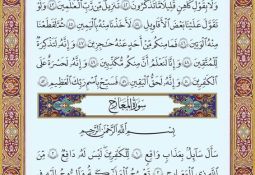 وَلَا بِقَوْلِ كَاهِنٍ قَلِيلًا مَّا تَذَكَّرُونَ ٤٢ تَنزِيلٌ مِّن رَّبِّ الْعَالَمِينَ ٤٣ وَلَوْ
تَقَوَّلَ عَلَيْنَا بَعْضَ الْأَقَاوِيلِ ٤٤ لَأَخَذْنَا مِنْهُ بِالْيَمِينِ ٤٥ ثُمَّ لَقَطَعْنَا
مِنْهُ الْوَتِينَ ٤٦ فَمَا مِنكُم مِّنْ أَحَدٍ عَنْهُ حَاجِزِينَ ٤٧ وَإِنَّهُ لَتَذْكِرَةٌ
لِّلْمُتَّقِينَ ٤٨ وَإِنَّا لَنَعْلَمُ أَنَّ مِنكُم مُّكَذِّبِينَ ٤٩ وَإِنَّهُ لَحَسْرَةٌ عَلَى
الْكَافِرِينَ ٥٠ وَإِنَّهُ لَحَقُّ الْيَقِينِ ٥١ فَسَبِّحْ بِاسْمِ رَبِّكَ الْعَظِيمِ ٥٢
سُورَةُ الْمَعَارِجِ
بِسْمِ اللَّهِ الرَّحْمَٰنِ الرَّحِيمِ
سَأَلَ سَائِلٌ بِعَذَابٍ وَاقِعٍ ١ لِّلْكَافِرِينَ لَيْسَ لَهُ دَافِعٌ ٢ مِّنَ